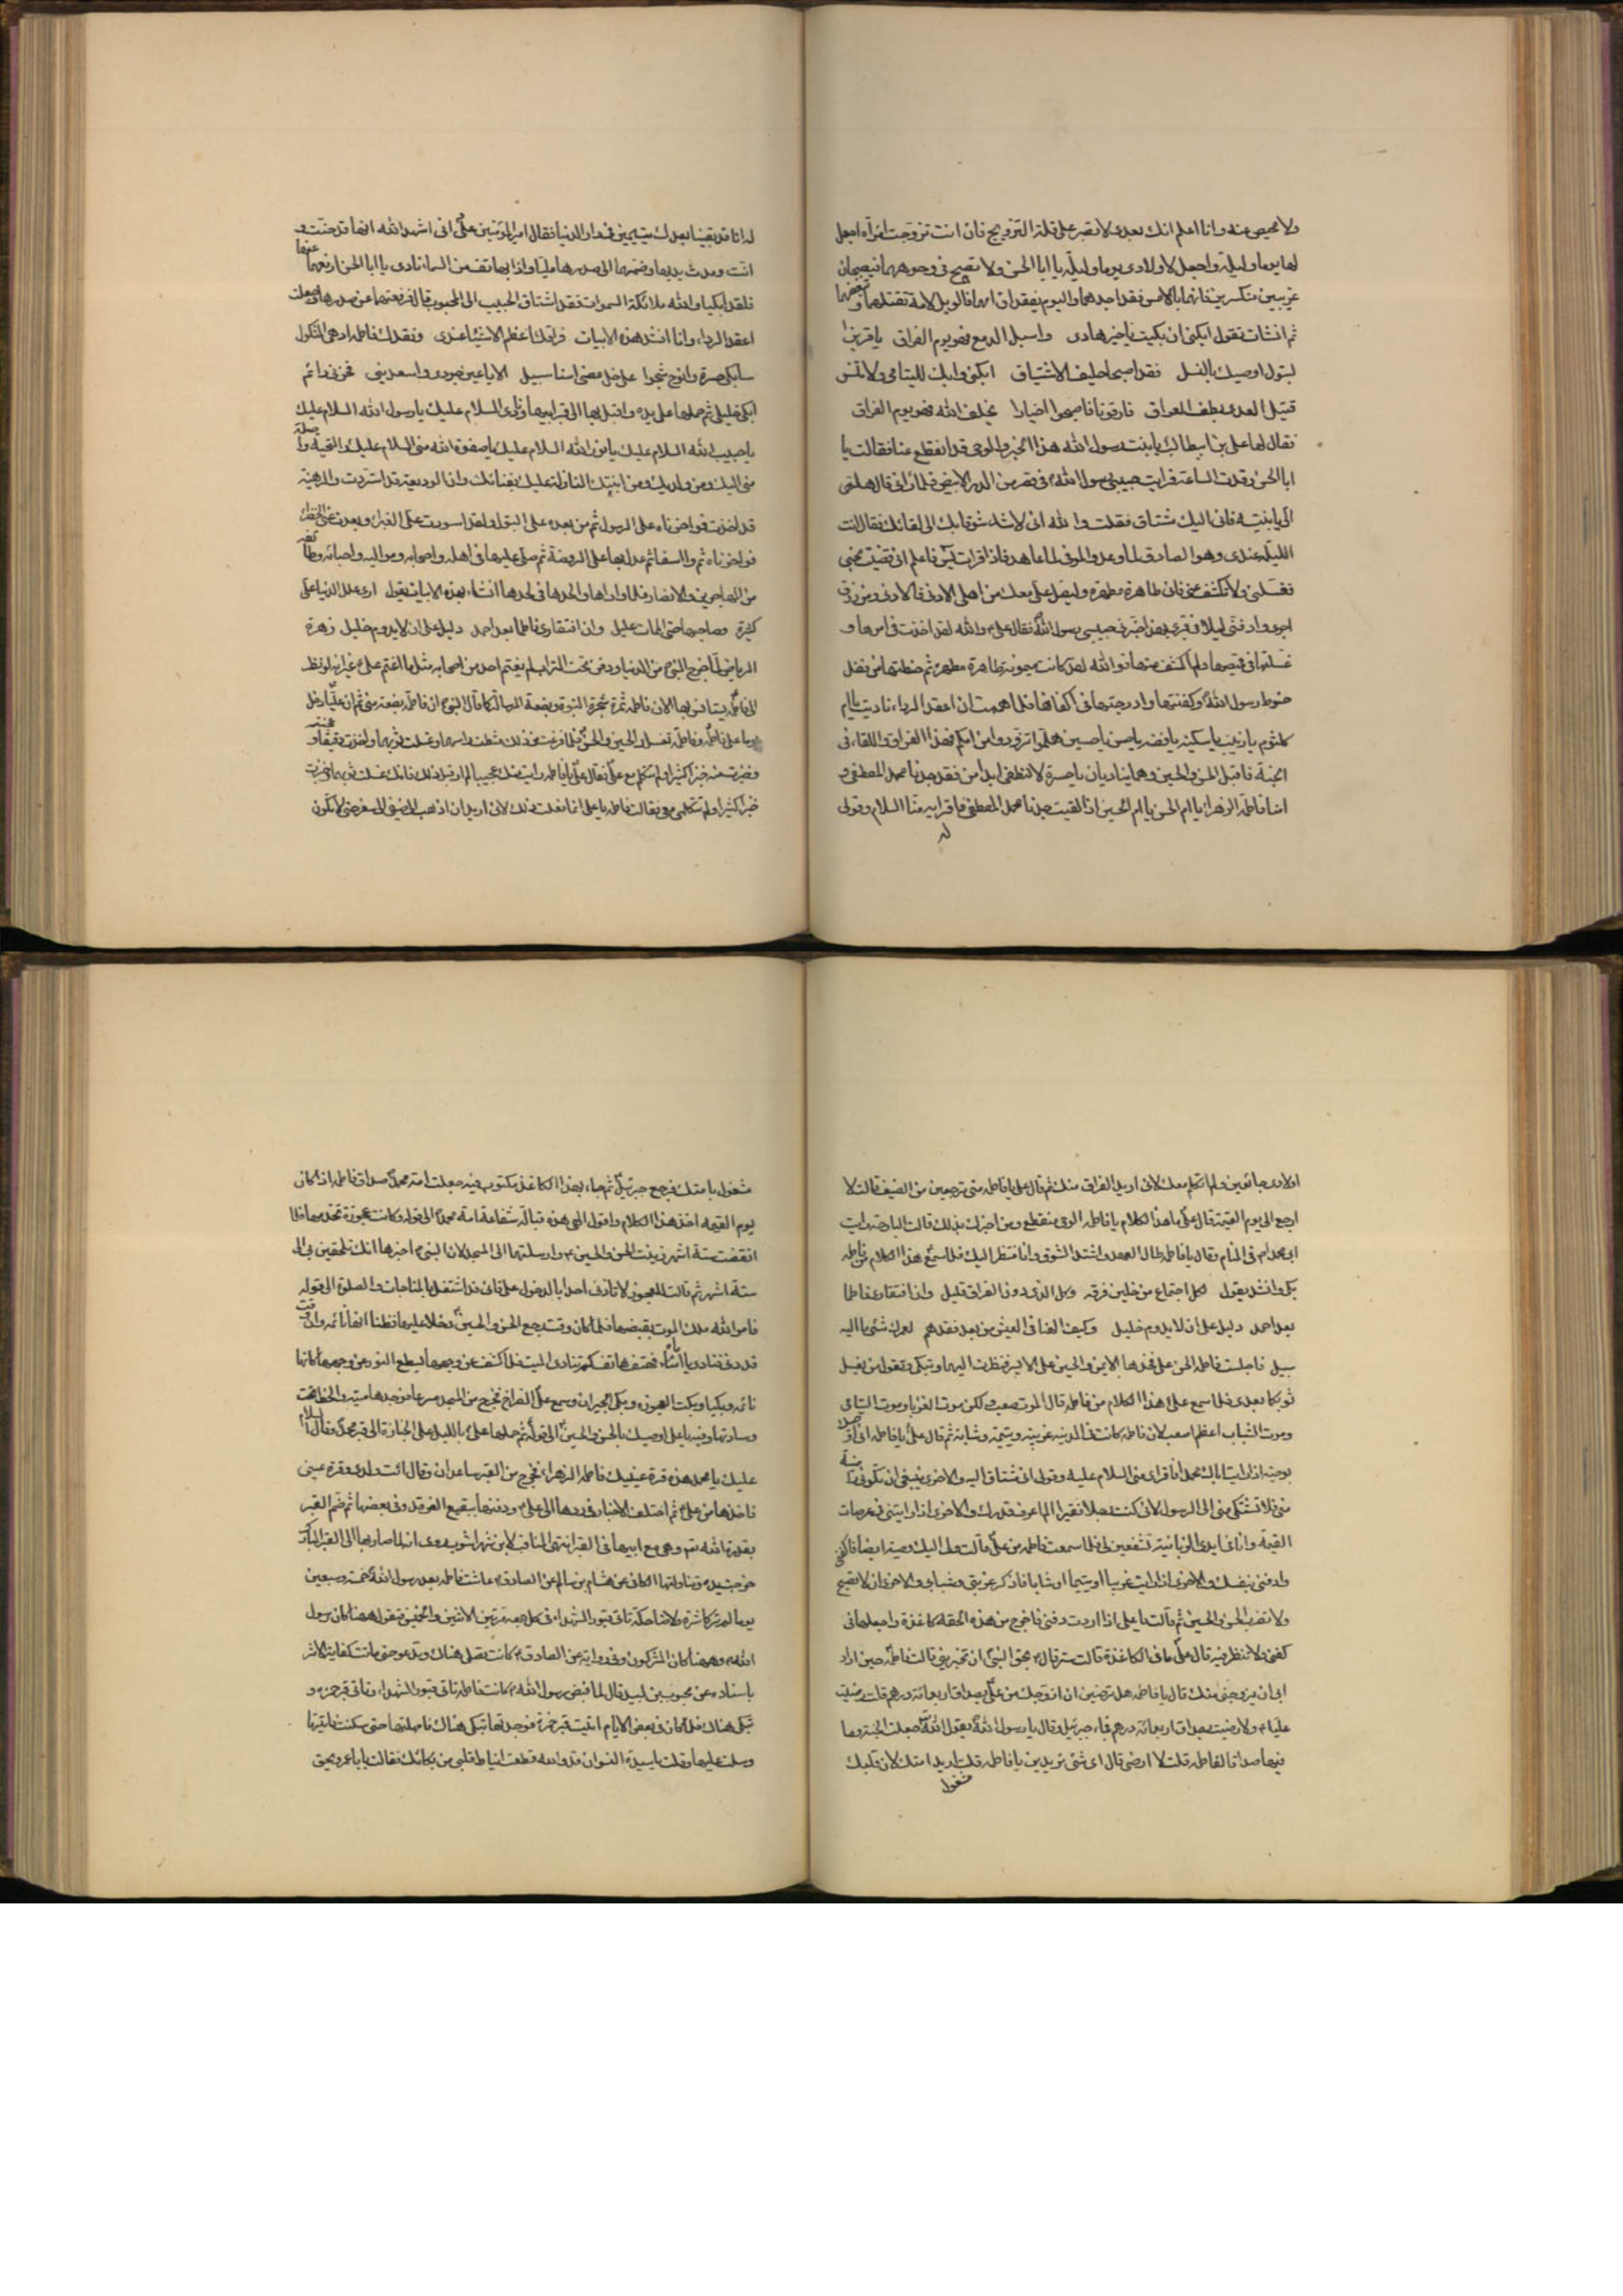 ولا محيص عنه وانا اعلم انك بعدى لا تصبر على قلة التزويج فان انت تزوجت امرأة اجعل
لها يوما وليلة واجعل لاولادى يوما وليلة يا ابا الحسن ولا تصيح فى وجوههما فيصبحان
غريبين منكسرين فانهما بالامس فقدا جدهما واليوم يفقدان امهما فالويل لامة تقتلهما وتبغضهما
ثم انشات تقول ابكنى ان بكيت يا خير هادى واسبل الدمع فهو يوم الفراق يا قرين
لبتول اوصيك بالنسل فقد اصبحا حليف الاشتياق ابكنى وابك لليتامى ولا تنس
قتيل العدى بطف العراق فارقونا فاصبحوا يخلف الله فهو يوم الفراق
فقال لها على بن ابيطالب يا بنت رسول الله هذا الخبر والوحى قد انقطع عنا فقالت يا
ابا الحسن رقدت الساعة فرايت حبيبى رسول الله فى قصر من الدر الابيض فلما رانى قال هلمى
الى يا بنيه فانى اليك مشتاق فقلت والله انى لاشد شوقا بك الى لقائك فقال انت
الليلة عندى وهو الصادق لما وعد والموفى لما عاهد فاذا قرات يس فاعلم انى قضيت نحبى
فغسلنى ولا تكشف عنى فانى طاهرة مطهرة وليصل على معك من اهلى الادنى فالادنى ومن رزق
اجرى وادفنى ليلا فى قبرى بهذا اخبرنى حبيبى رسول الله فقال على والله لقد اخذت فى امرها و
غسلتها فى قميصها ولم اكشف عنها فوالله لقد كانت ميمونة طاهرة مطهرة ثم حنطتها من فضل
حنوط رسول الله وكفنتها وادرجتها فى اكفانها فلما هممت ان اعقد الرداء ناديت يا ام
كلثوم يا زينب يا سكينه يا فضه يا حسن يا حسين هلموا تزودوا من امكم فهذا الفراق واللقاء فى
الجنة فاقبل الحسن والحسين وهما يناديان يا حسرة لا تنطفى ابدا من فقد جدنا محمد المصطفى و
امنا فاطمة الزهراء يا ام الحسن يا ام الحسين اذا لقيت جدنا محمد المصطفى فاقرايه منا السلام وقولى
له
له انا قد بقينا بعدك يتيمين فى دار الدنيا فقال امير المؤمنين على انى اشهد الله انها قد حنت و
انت ومدت يديها وضمتهما الى صدرها مليا واذا بهاتف من السماء نادى يا ابا الحسن ارفعهما عنها
فلقد ابكيا والله ملائكة السموات فقد اشتاق الحبيب الى المحبوب قال فرفعتهما عن صدرها وجعلت
اعقد الرداء وانا انشد هذه الابيات فراقك اعظم الاشياء عندى وفقدك فاطم ادهى الثكول
سابكى حسرة وانوح شجوا على خل مضى اسنا سبيل الا يا عين جودى واسعدينى فحزنى دائم
ابكى خليلى ثم حملها على يده واقبل بها الى قبر ابيها ونادى السلام عليك يا رسول الله السلام عليك
يا حبيب الله السلام عليك يا نور الله السلام عليك يا صفوة الله منى السلام عليك والتحية واصلة
منى اليك ومن ولديك ومن ابنتك النازلة عليك بفنائك وان الوديعة قد استردت والرهينة
قد اخذت فواحزناه على الرسول ثم من بعده على البتول ولقد اسودت على الغبراء وبعدت عنى الخضراء
فواحزناه ثم والسفاه ثم عدل بها على الروضة ثم صلى عليها فى اهله واصحابه ومواليه واحبائه وطائفه
من المهاجرين والانصار فلما واراها والحدها فى لحدها انشاء بهذه الابيات يقول ارى علل الدنيا على
كثيرة وصاحبها حتى الممات عليل وان افتقادى فاطما بعد احمد دليل على ان لا يدوم خليل زهرة
الرياض لما خرج النبى من الدنيا ودفن تحت التراب لم يغتم احد من اصحابه مثل ما اغتم على غير انه لو نظر
الى فاطمة يستانس بها لان فاطمة ثمرة شجرة النبوة وبضعة الرسالة كما قال النبى ان فاطمة بضعة منى ثم ان عليا دخل
يوما على فاطمة وفاطمة تغسل الحسن والحسين فلما فرغت من ذلك مشطت راسهما وغسلت ثوبهما واخذت دقيقا وعجنته
وخبزت منه خبزا كثيرا ولم تتكلم مع على فقال على يا فاطمة رايت منك عجيبا لم ار قبل ذلك فانك غسلت ثوبهما وخبزت
خبزا كثيرا ولم تتكلمى معى فقالت فاطمة يا على انما فعلت ذلك لانى اريد ان اذهب الى ضيف الى سفر حتى لا تكون
اولادى جائعين ولم اتكلم معك لانى اريد الفراق منك ثم قال على يا فاطمة متى ترجعين من الضيف قالت لا
ارجع الى يوم القيمة قال على ما هذا الكلام يا فاطمة الوحى منقطع ومن اخبرك بذلك قالت البارحة رايت
ابى محمدا م فى المنام وقال يا فاطمة طال العهد واشتد الشوق وانا منتظر اليك فلما سمع هذا الكلام من فاطمة
بكى وانشد يقول لكل اجتماع من خليلين فرقه وكل الذى دون الفراق قليل وان افتقادى فاطما
بعد احمد دليل على ان لا يدوم خليل وكيف الهنا فى العيش من بعد فقدهم لعمرك شئ ما اليه
سبيل فاجلست فاطمة الحسن على فخذها الايمن والحسين على الايسر فنظرت اليهما وتبكى وتقول من يغسل
ثوبكما بعدى فلما سمع على هذا الكلام من فاطمة قال الموت صعب ولكن موت الغربا وموت اليتامى
وموت الشباب اعظم اصعب لان فاطمة كانت فى المدينه غريبة ويتيمة وشابة ثم قال على يا فاطمة انى اوصيك
بوصية اذا رايت اباك محمدا فاقراى منى السلام عليه وقولى انى مشتاق اليه والاخرى ينبغى ان تكونى راضية
منى فلا تشتكى منى الى الرسول لانى كنت رجلا فقيرا لم اعرف قدرك والاخرى اذا رايتنى فى عرصات
القيمة وانا فى ايدى الزبانية تشفعين لى فلما سمعت فاطمة من على قالت ولى اليك وصية ايضا فاكفنى
وادفنى بنفسك والاخرى اذا رايت غريبا او يتيما او شابا فاذكر غربتى وشبابى والاخرى ان لا تصيح
ولا تضرب الحسن والحسين ثم قالت يا على اذا اردت دفنى فاخرج من هذه الحقة كاغذة واجعلها فى
كفنى ولا تنظر فيه قال على ما فى الكاغذة قالت ستر قال بحق النبى ان تخبرينى قالت فاطمة حين اراد
ابى ان يزوجنى منك قال يا فاطمة هل ترضين ان ازوجك من على بصداق اربعمائة درهم قلت رضيت
عليا ولا رضيت بصداق اربعمائة درهم فجاء جبرئيل وقال يا رسول الله يقول الله جعلت الجنة وما
فيها صداقا لفاطمة قلت لا ارضى قال اى شئ تريدين يا فاطمة قلت اريد امتك لان قلبك
مشغول
مشغول بامتك فرجع جبرئيل ثم جاء بهذا الكاغذ مكتوب فيه جعلت امة محمد صداق فاطمة اذا كان
يوم القيمه اخذ هذا الكلام واقول الهى هذه قبالة شفاعة امة محمد الى قوله وكانت عجوزة تخدمها فلما
انقضت ستة اشهر زينت الحسن والحسين وارسلتهما الى المسجد لان النبى اخبرها انك تلحقين بى الى
ستة اشهر ثم قالت للعجوز لا تاذنى احدا بالدخول على فانى قد اشتغل بالمناجات والصلوة الى قوله
فامر الله ملك الموت بقبضها فلما كان وقت رجع الحسن والحسين دخلا عليها فظنا انها نائمه وان وقت
قد دنى فناديا يا امتاه فهتف هاتف كم تنادى الميت فلما كشف عن وجهها يسطع النور من وجهها كانها
نائمه وبكيا وبكت العجوزه وبكى الجيران وسمع على الصراخ فخرج من المسجد مسرعا فوجدها ميتة والخط تحت
وسادتها وفيه يا على اوصيك بالحسن والحسين الى قوله ثم حملها على بالليل على الجنازة الى قبر محمد وقال السلام
عليك يا محمد هذه قرة عينيك فاطمة الزهراء فخرج من القبر ساعدان وقال ائت ولدى وقرة عينى
فاخذها من على ثم اختلف الاخبار فى ردها الى على ودفنها ببقيع الغرقد وفى بعضها ثم ضم القبر
بقدرة الله تعالى وهى مع ابيها فى القبر انتهى المناقب لابن شهر اشوب روى انها لما صار بها الى القبر المبارك
خرجت يد فتناولتها الكافى عن هشام بن سالم عن الصادق عاشت فاطمة بعد رسول الله خمسة وسبعين
يوما لم تر كاشرة ولا ضاحكة تاتى قبور الشهداء فى كل جمعة مرتين الاثنين والخميس فتقول ههنا كان رسول
الله وههنا كان المشركون وفى رواية عن الصادق كانت تصلى هناك وتدعو حتى ماتت كفاية الاثر
باسناده عن محمود بن لبيد قال لما قبض رسول الله كانت فاطمة تاتى قبور الشهداء وتاتى قبر حمزه و
تبكى هناك فلما كان فى بعض الايام اتيت قبر حمزة فوجدتها تبكى هناك فامهلتها حتى سكنت فاتيتها
وسلمت عليها وقلت يا سيدة النسوان قد والله قطعت انياط قلبى من بكائك فقالت يا با عمر ويحق